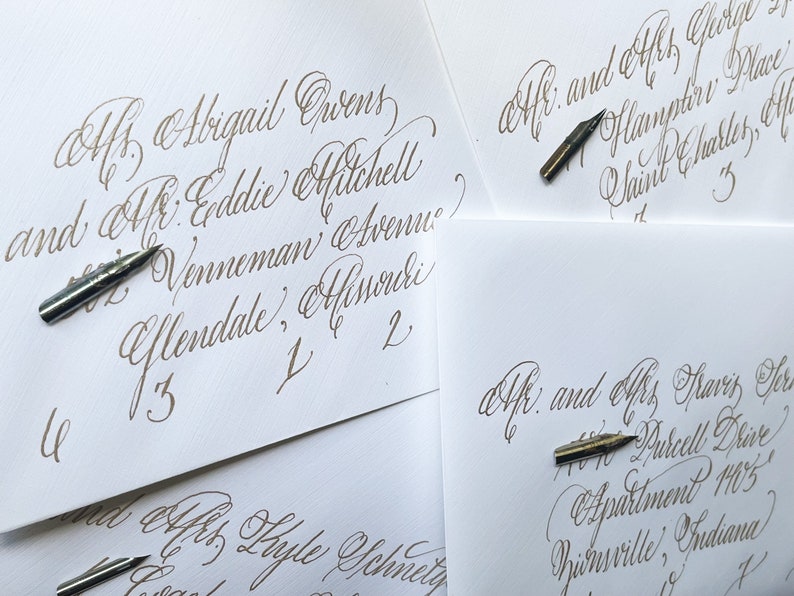 Ms. Abigail Owens
and Mr. Eddie Mitchell
Venneman Avenue
Glendale, Missouri
6 3 1 2
Mr. and Mrs. George
Hampton Place
Saint Charles,
3
Mr. and Mrs. Travis
Purcell Drive
Apartment 1405
Zionsville, Indiana
and Mrs. Kyle